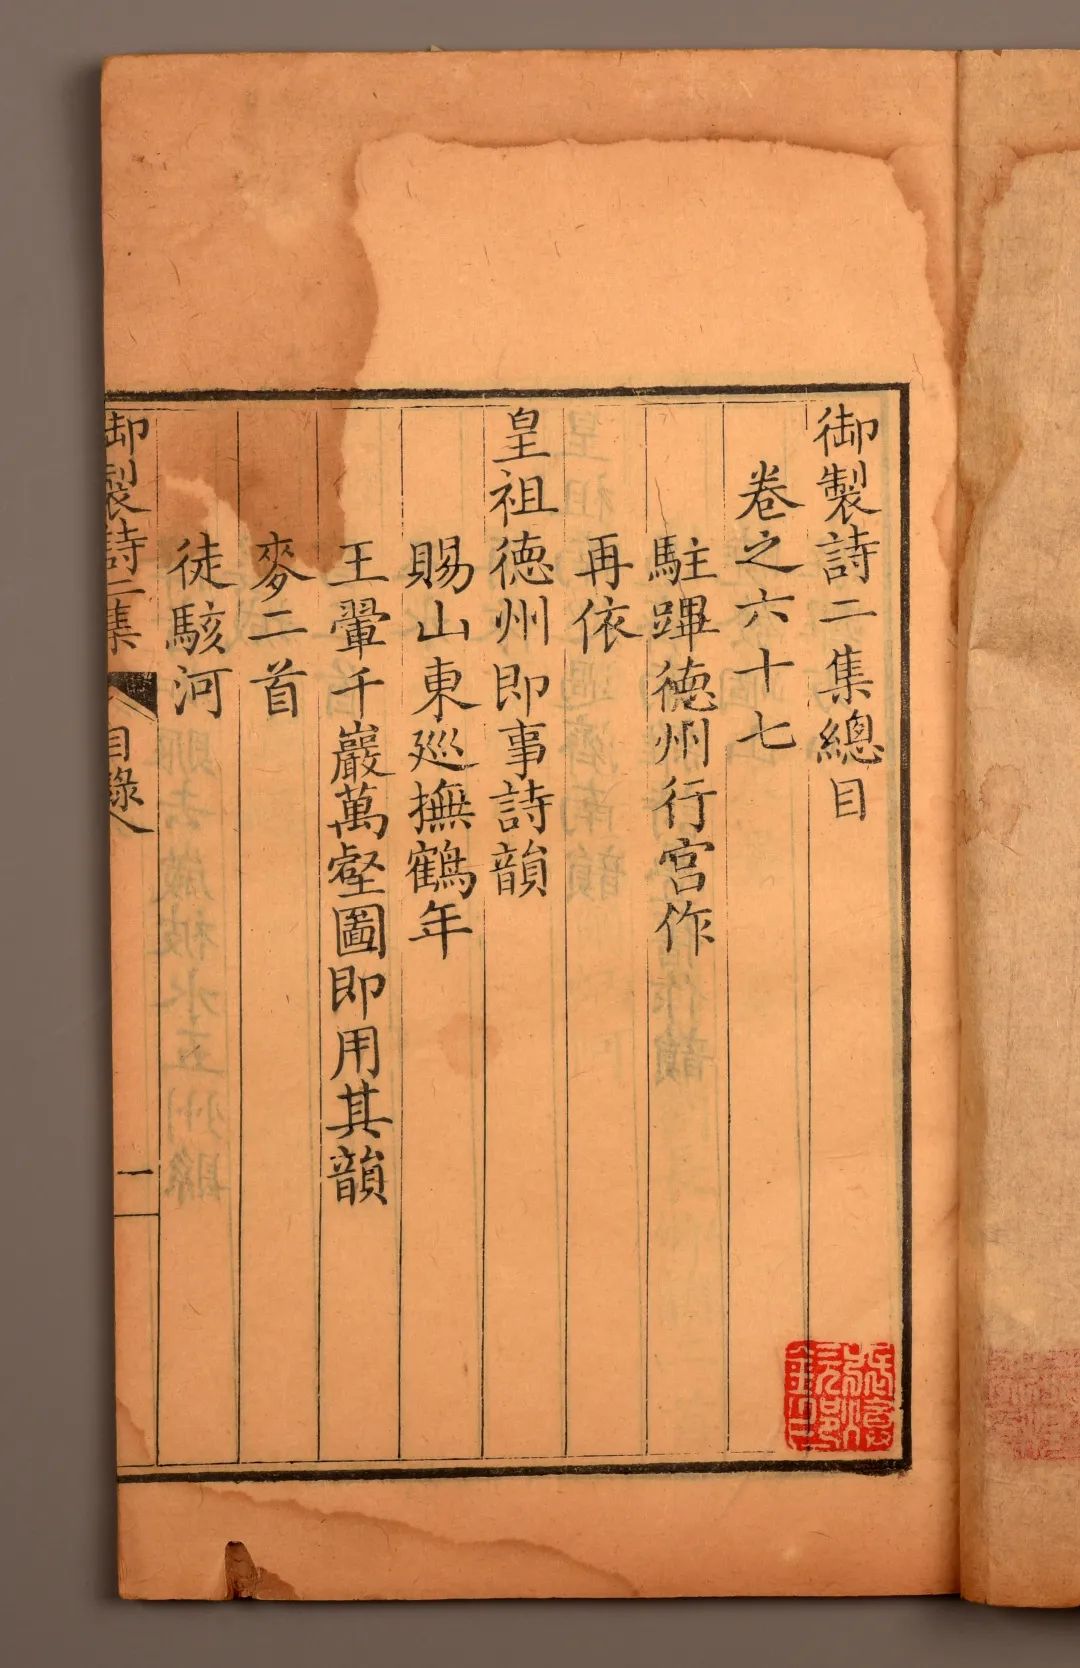 御製詩二集總目
卷之六十七
駐蹕德州行宮作
再依
皇祖德州即事詩韻
賜山東廵撫鶴年
王翬千巖萬壑圖即用其韻
麥二首
徒駭河
御製詩二集
目錄
一